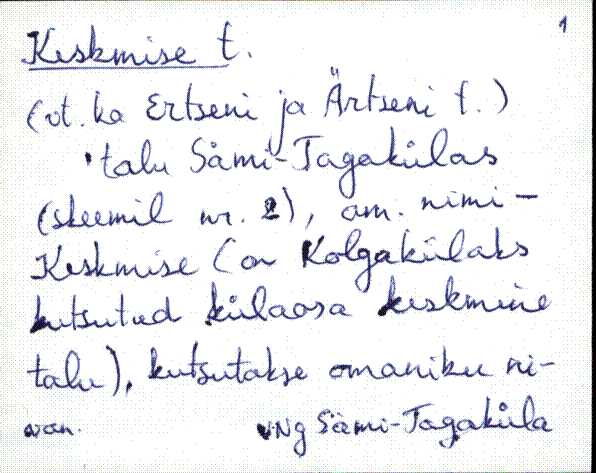 1
Keskmise t.
(vt. ka Ertseni ja Ärtseni t.)
talu Sämi-Tagakülas
(skeemil nr. 2), am. nimi -
Keskmise (on Kolgakülaks
kutsutud külaosa keskmine
talu), kutsutakse omaniku ni-
VNg Sämi-Tagaküla